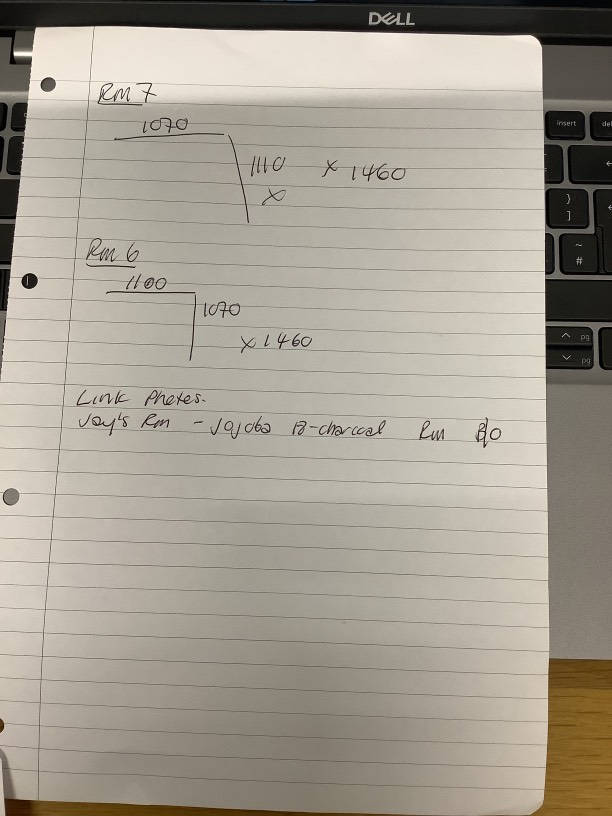 DELL
insert
Rm 7
1070
1110 x 1460
x
Rm 6
1100
1070
x 1460
Link Photos.
Joy's Rm - Jojoba 18-charcoal Rm
}
]
~
#
pg
pg